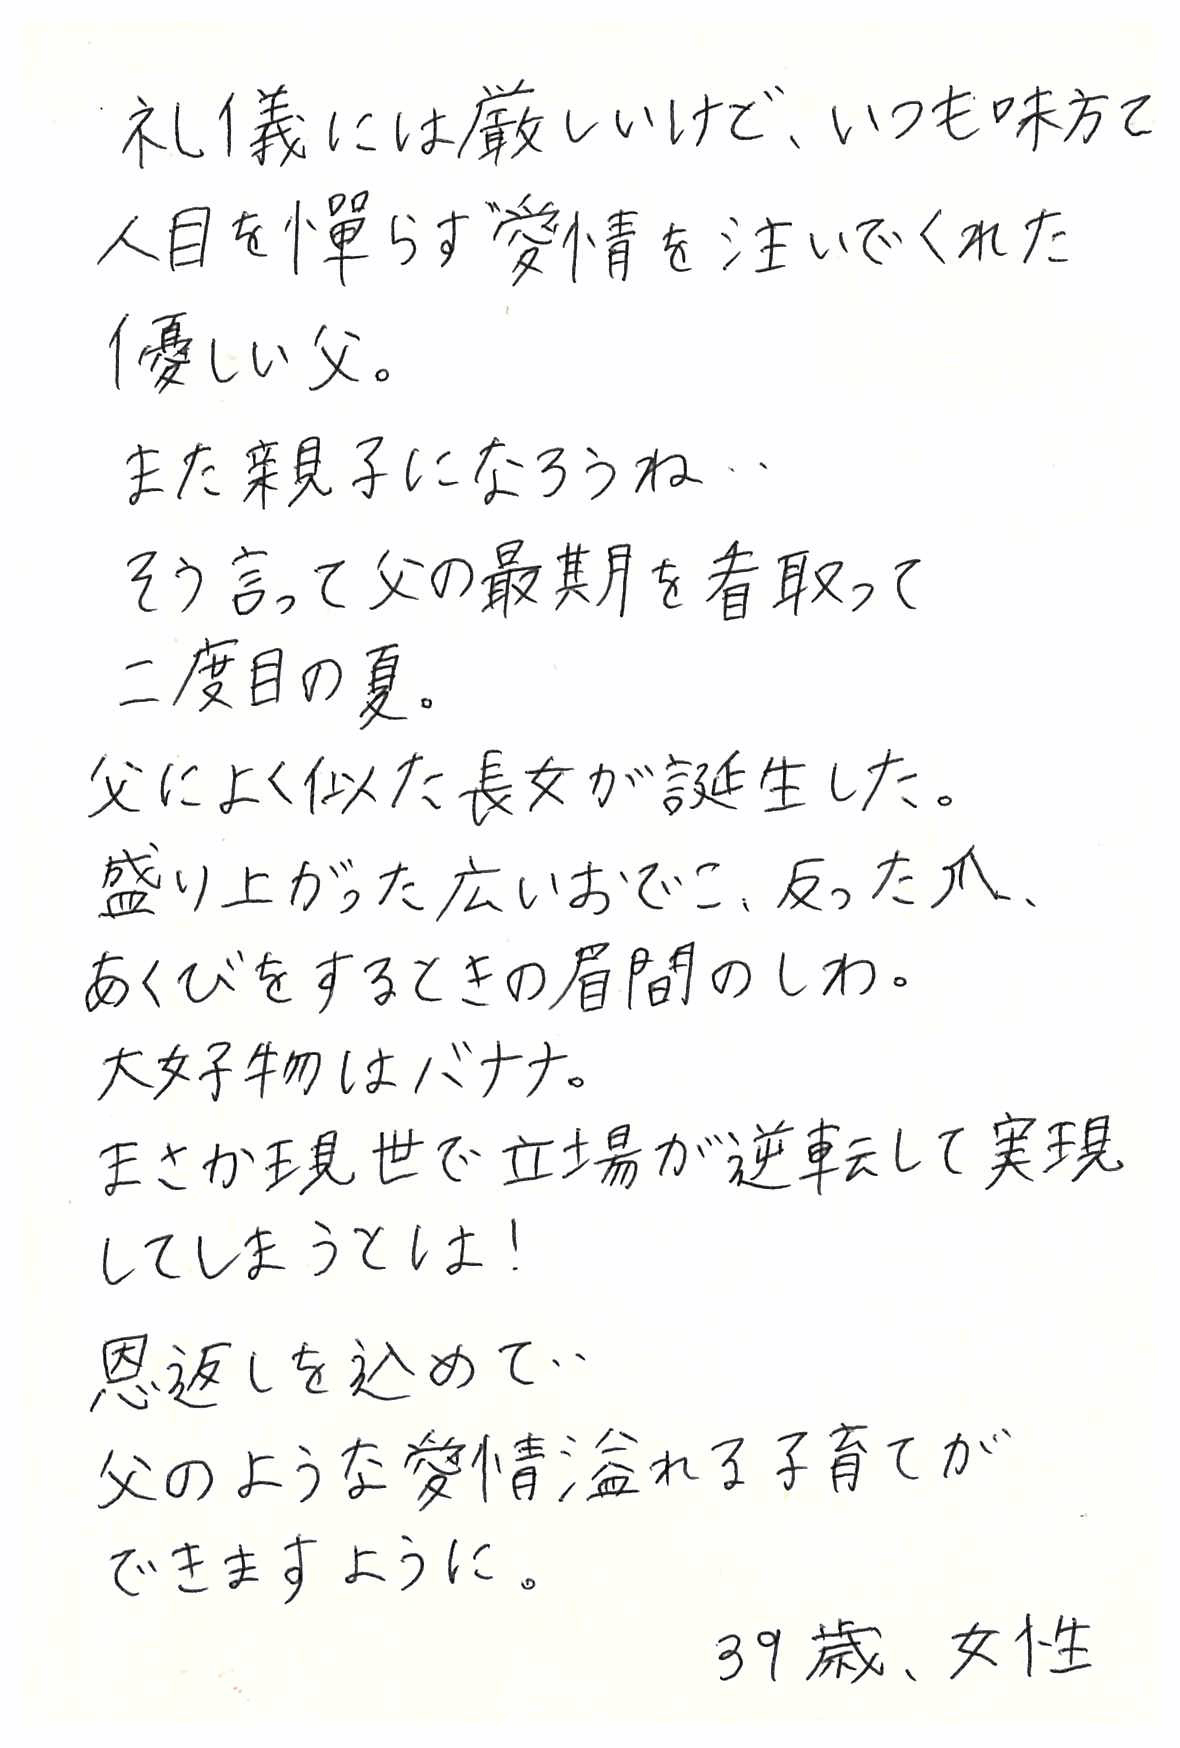 礼儀には厳しいけど、いつも味方で
人目を憚らず愛情を注いでくれた
優しい父。
また親子になろうね‥
そう言って父の最期を看取って
二度目の夏。
父によく似た長女が誕生した。
盛り上がった広いおでこ、反った爪、
あくびをするときの眉間のしわ。
大好物はバナナ。
まさか現世で立場が逆転して実現
してしまうとは！
恩返しを込めて‥
父のような愛情溢れる子育てが
できますように。
39歳、女性